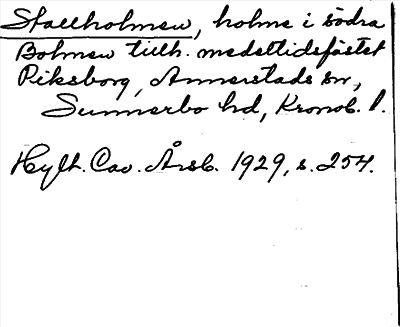 Stallholmen, holme i södra
Bolmen tillh. medeltidsfästet
Piksborg, Annerstads sn,
Sunnerbo hd, Kronob. l.
Hylt. Cav. Årsb. 1929, s. 254.